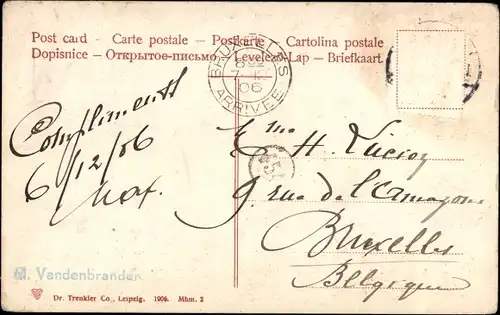 Post card - Carte postale - Postkarte - Cartolina postale
Dopisnice - Открытое-письмо - Levelezö-Lap - Briefkaart
BRUXELLES
7
06
ARRIVEE
Compliments
6/12/06
Max.
H.
9 rue de l'
Bruxelles
Belgique
M. Vandenbranden
Dr. Trenkler Co., Leipzig. 1906. Mhm. 2